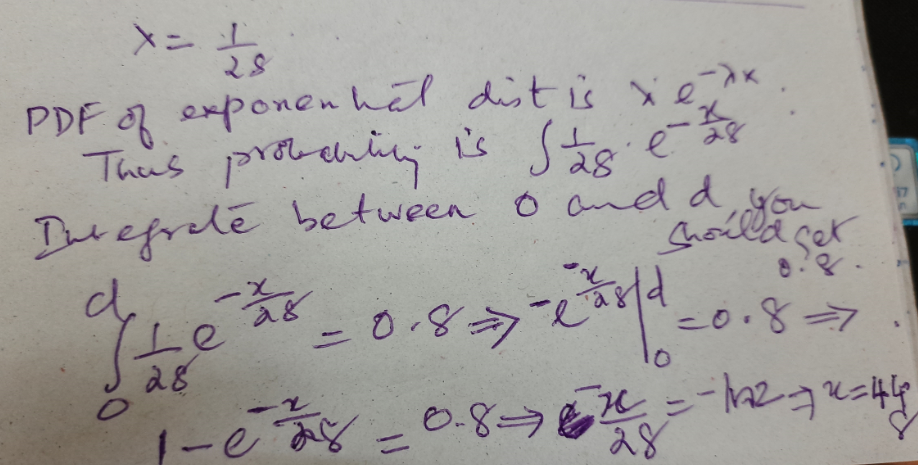 λ = 1/28
PDF of exponential dist is λ e^{-λx}.
Thus probability is ∫ 1/28 · e^{-x/28}
Integrate between 0 and d, you
should get
0.8.
∫_0^d 1/28 e^{-x/28} = 0.8 ⇒ -e^{-x/28} |_0^d = 0.8 ⇒
1 - e^{-x/28} = 0.8 ⇒ -x/28 = ⇒ x = 44